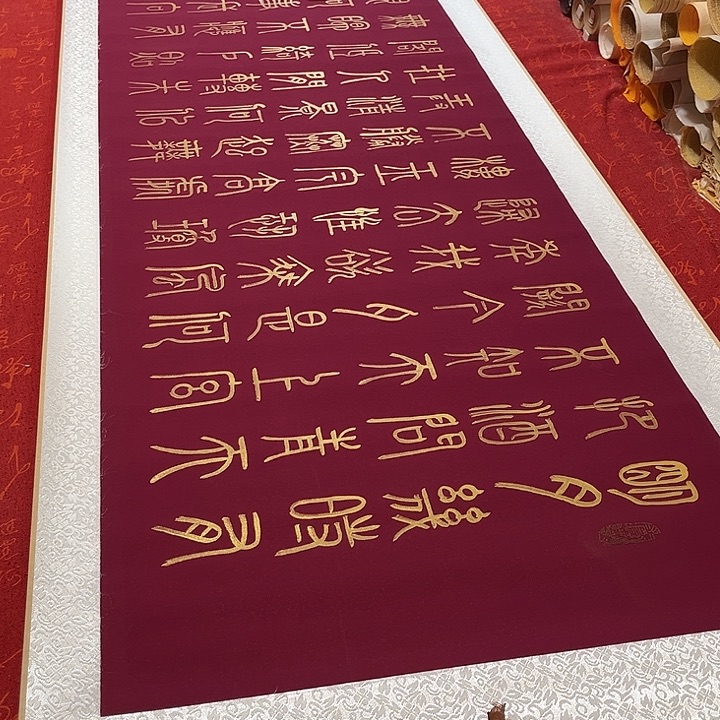 明月幾時有
把酒問青天
不知天上宮
闕今夕是何
年我欲乘風
歸去惟恐瓊
樓玉宇高處
不勝寒起舞
弄清影何似
在人間轉朱
閣低綺戶照
無眠不應有